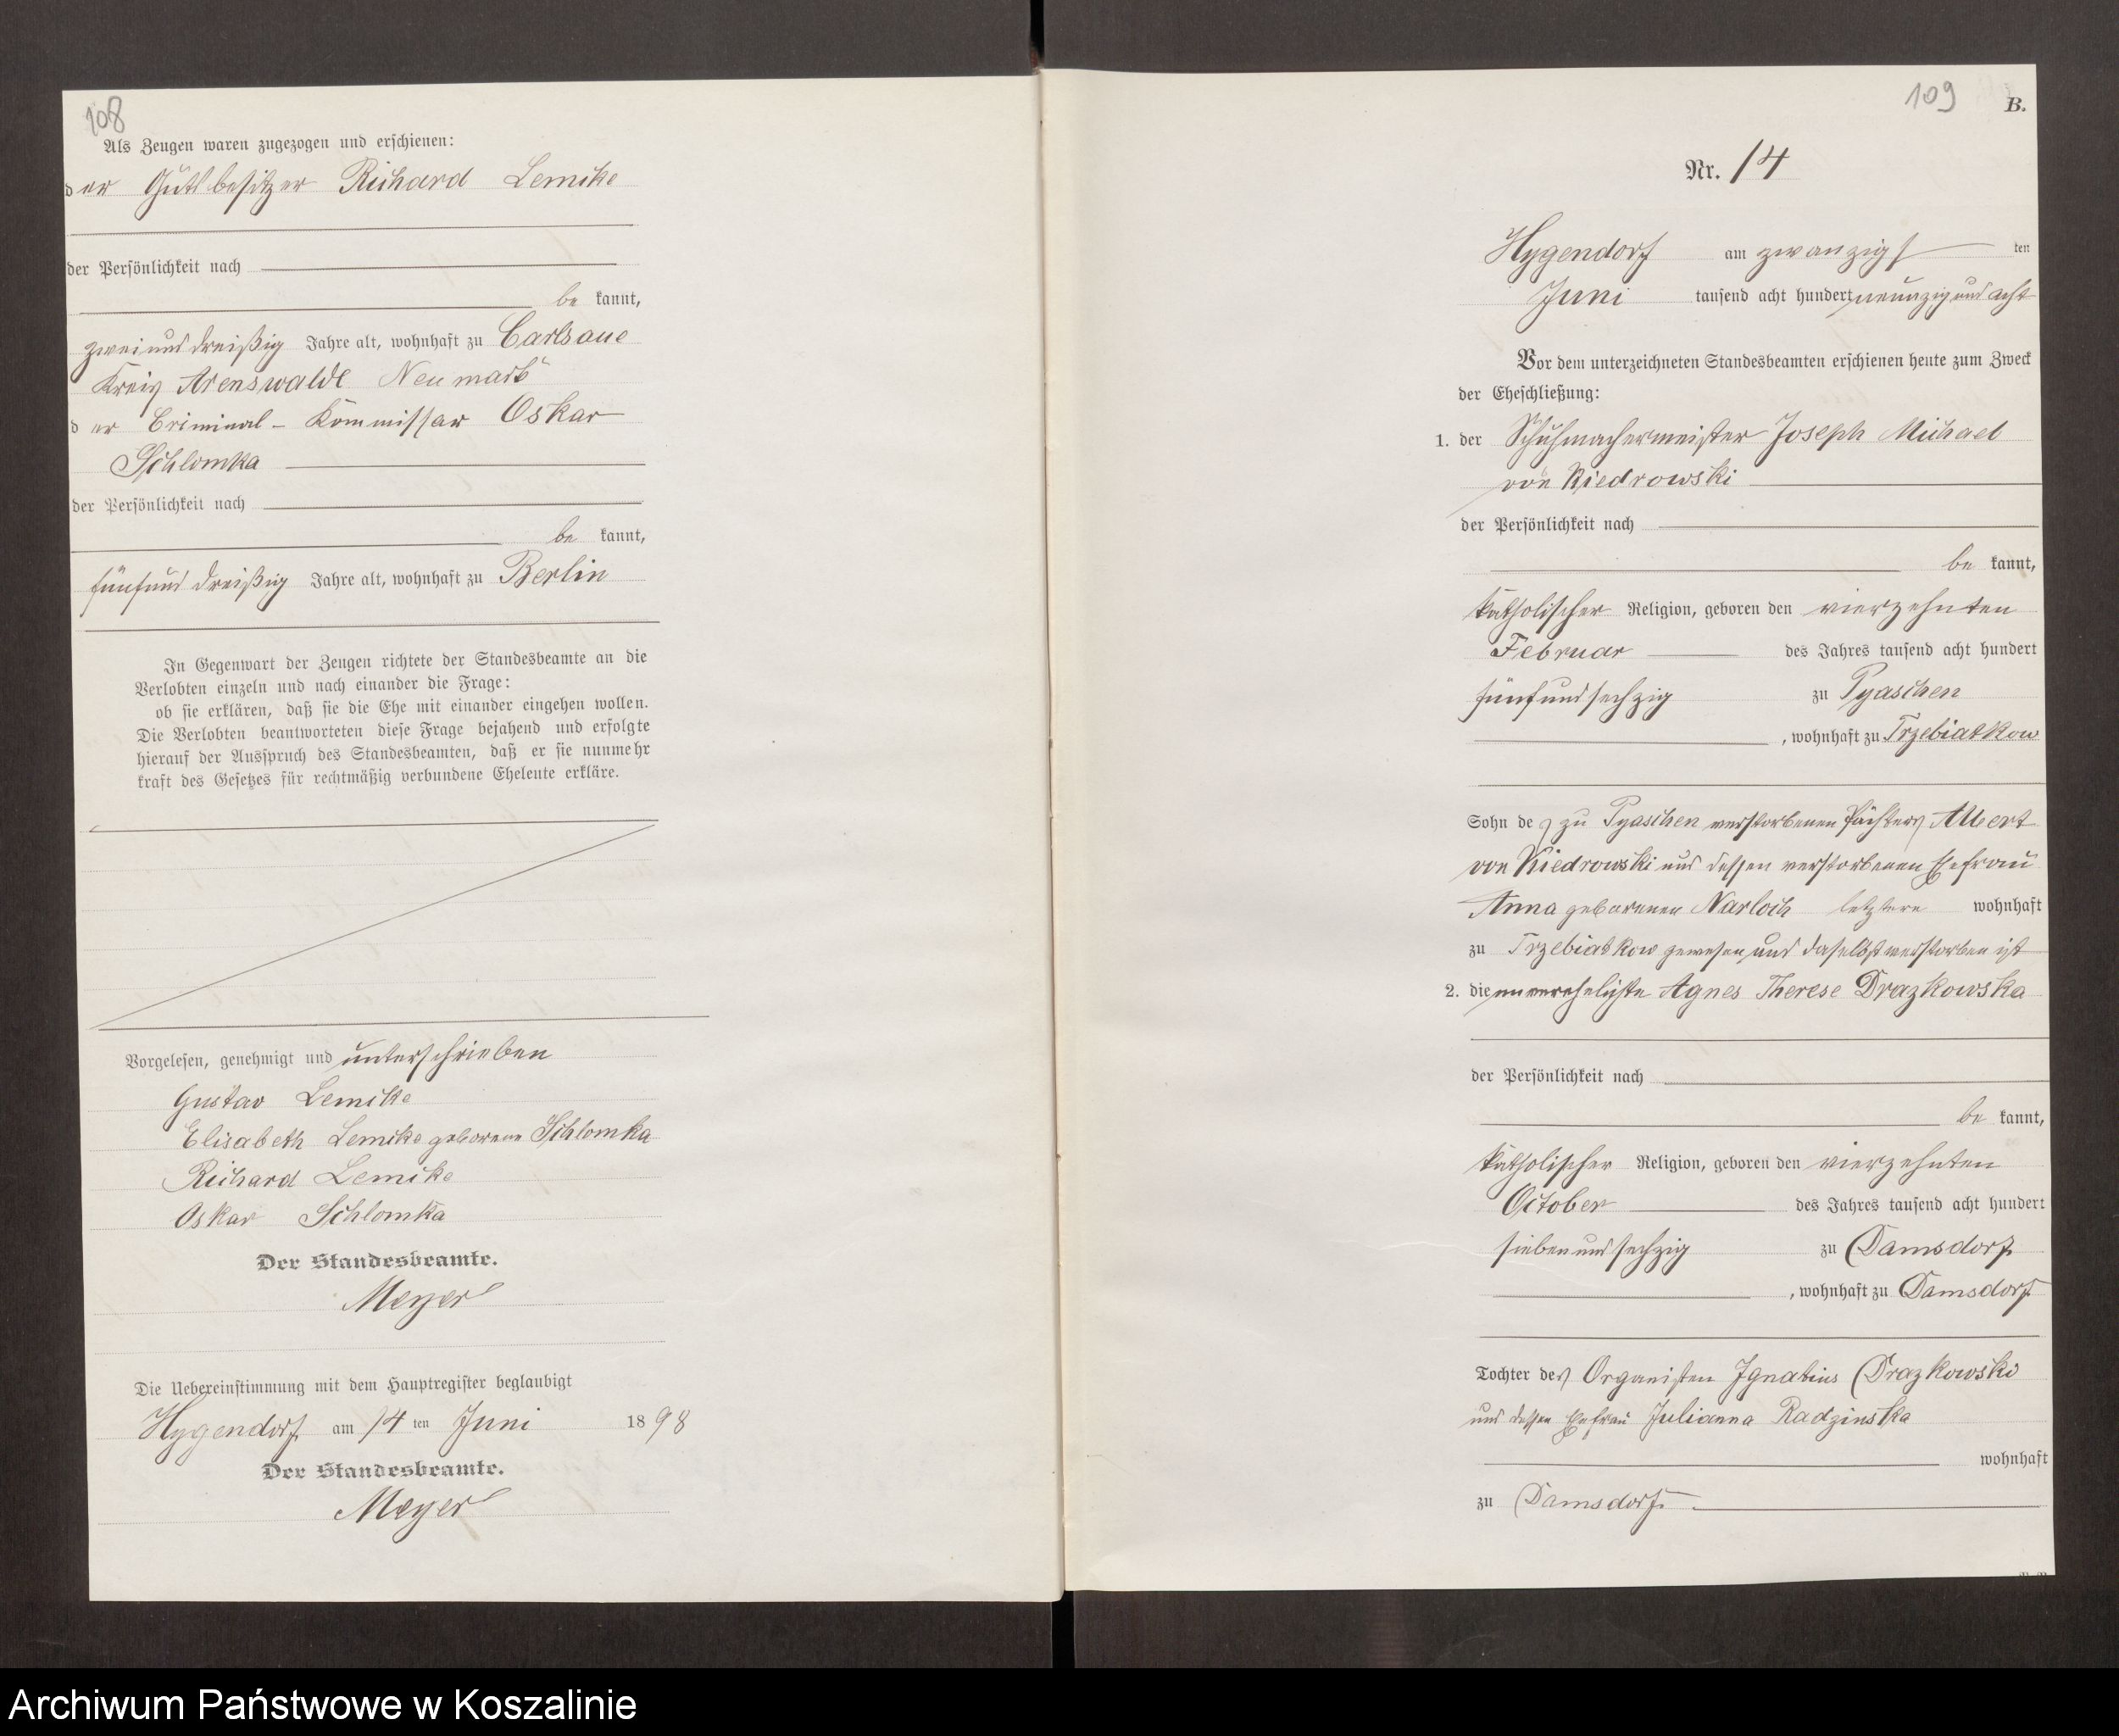 108
Als Zeugen waren zugezogen und erschienen:
der Gutsbesitzer Richard Lemcke
der Persönlichkeit nach
be kannt,
zweiunddreißig Jahre alt, wohnhaft zu Carlsaue
Kreis Arenswalde Neumark
der Criminal-Kommissar Oskar
Schlomka
der Persönlichkeit nach
be kannt,
fünfunddreißig Jahre alt, wohnhaft zu Berlin
In Gegenwart der Zeugen richtete der Standesbeamte an die
Verlobten einzeln und nach einander die Frage:
ob sie erklären, daß sie die Ehe mit einander eingehen wollen.
Die Verlobten beantworteten diese Frage bejahend und erfolgte
hierauf der Ausspruch des Standesbeamten, daß er sie nunmehr
kraft des Gesetzes für rechtmäßig verbundene Eheleute erkläre.
Vorgelesen, genehmigt und unterschrieben
Gustav Lemcke
Elisabeth Lemcke geborene Schlomka
Richard Lemcke
Oskar Schlomka
Der Standesbeamte.
Meyer
Die Uebereinstimmung mit dem Hauptregister beglaubigt
Hygendorf am 14 ten Juni 1898
Der Standesbeamte.
Meyer
109 B.
Nr. 14
Hygendorf am zwanzigsten
Juni tausend acht hundert neunzig und acht
Vor dem unterzeichneten Standesbeamten erschienen heute zum Zweck
der Eheschließung:
1. der Schuhmachermeister Joseph Michael
von Kiedrowski
der Persönlichkeit nach
be kannt,
katholischer Religion, geboren den vierzehnten
Februar des Jahres tausend acht hundert
fünfundsechzig zu Pyaschen
, wohnhaft zu Trzebiatkow
Sohn des zu Pyaschen verstorbenen Pächters Albert
von Kiedrowski und dessen verstorbenen Ehefrau
Anna geborenen Narloch letztere wohnhaft
zu Trzebiatkow gewesen und daselbst verstorben ist
2. die unverehelichte Agnes Therese Drazkowska
der Persönlichkeit nach
be kannt,
katholischer Religion, geboren den vierzehnten
October des Jahres tausend acht hundert
siebenundsechzig zu Damsdorf
, wohnhaft zu Damsdorf
Tochter des Organisten Ignatius Drazkowski
und dessen Ehefrau Julianna Radzinska
wohnhaft
zu Damsdorf.
Archiwum Państwowe w Koszalinie